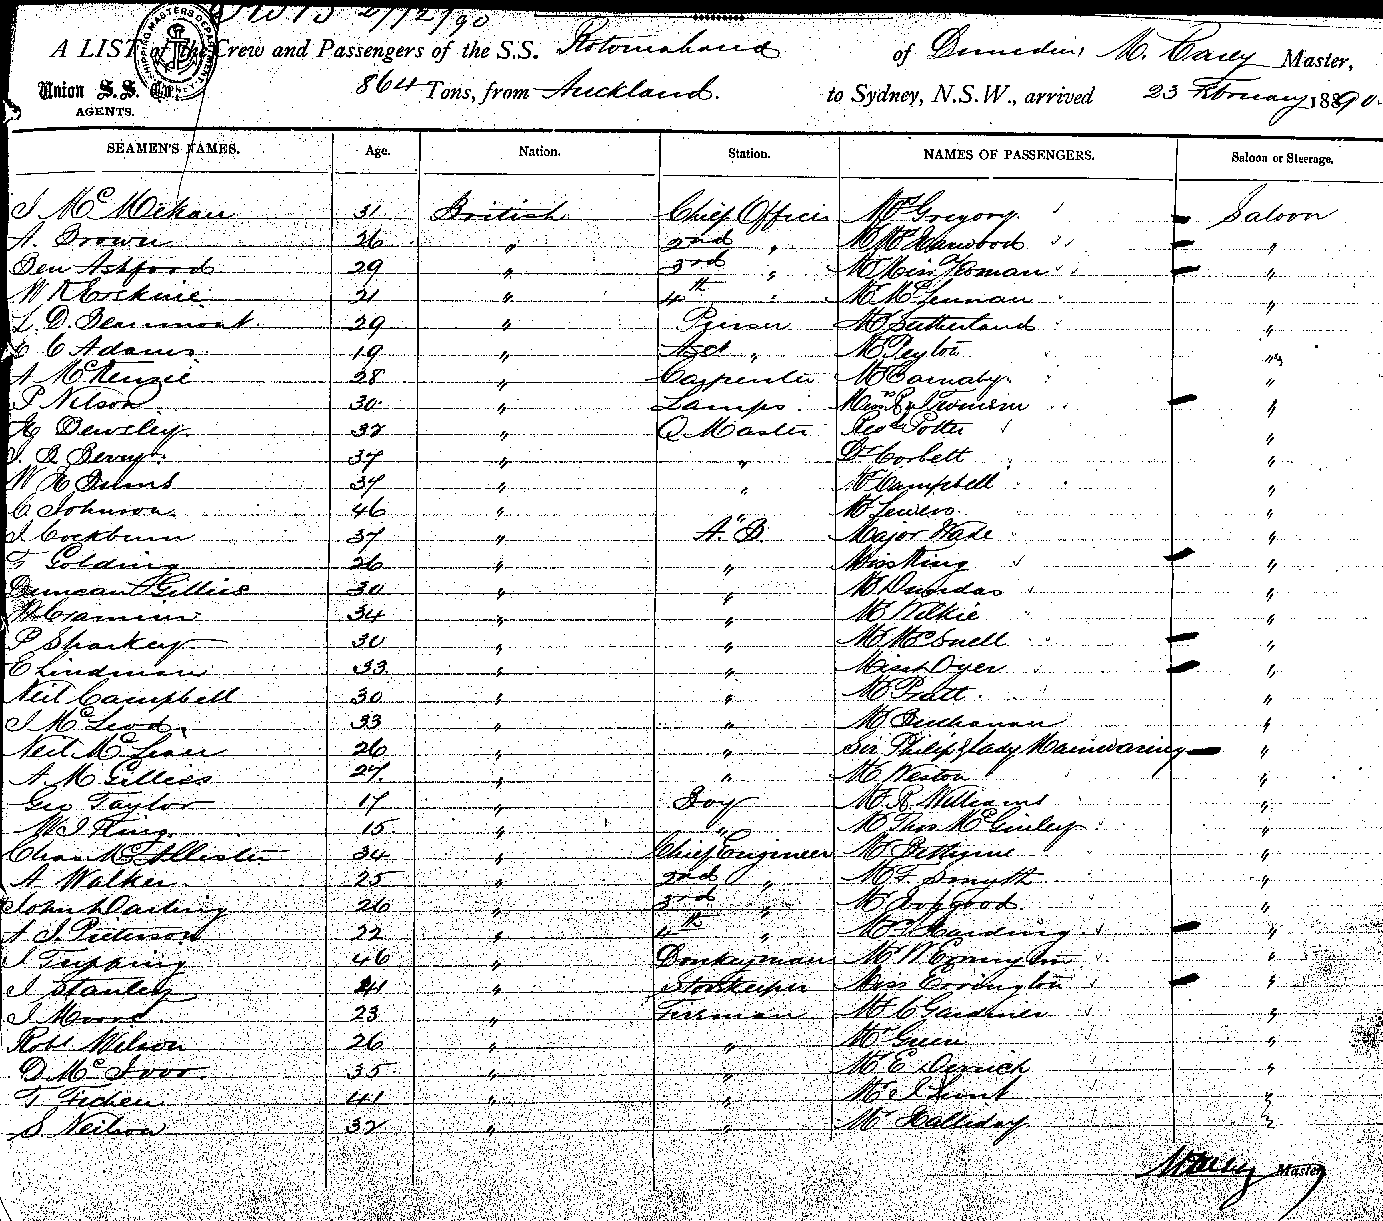 A LIST of the Crew and Passengers of the S.S. Rotomahana of Dunedin, M. Carey Master,
Union S. S. Co. 864 Tons, from Auckland. to Sydney, N.S.W., arrived 23 February 1890.
AGENTS.
SEAMEN'S NAMES. Age. Nation. Station. NAMES OF PASSENGERS. Saloon or Steerage.
J McMekan 31 British Chief Officer Mrs Gregory Saloon
A. Brown 26 " 2nd " "
Ben Ashford 29 " 3rd " "
W R Erskine 21 " 4th " Mr McLennan "
L. D. Beaumont 29 " Purser Mr Sutherland "
C Adams 19 " Asst " Mr Peyton "
A McKenzie 28 " Carpenter Mr Barnaby "
P Nilson 30 " Lamps "
Bewsley 32 " Q Master Potter "
Berry 37 " " Dr Corbett "
W H Burns 37 " " Mr Campbell "
C Johnson 46 " " Mr Lewers "
J Cockburn 37 " A. B. Major Wade "
F Golding 26 " " Miss King "
Duncan Gillies 30 " " Mr Dundas "
34 " " Mr Wilkie "
P Sharkey 30 " " "
C Lindman 33 " " Miss Dyer "
Neil Campbell 30 " " Mr Pratt "
J McLeod 33 " " Mr Buchanan "
Neil McLean 26 " " Sir Philip & Lady Mainwaring "
A M Gillies 27 " " Mr Weston "
Geo Taylor 17 " Boy Mr R Williams "
W J King 15 " " Mr Thos McGinley "
Chas McAllister 34 " Chief Engineer Mr Bethune "
A Walker 25 " 2nd " Mr F. Smyth "
John Darling 26 " 3rd " Mr Hopgood "
A J Peterson 22 " 4th " Mrs Harding "
J Tripping 46 " Donkeyman Mr W "
J Stanley 21 " Storekeeper Miss Errington "
J Moore 23 " Fireman Mr C Gardiner "
Robt Wilson 26 " " Mr Green "
D McIvor 35 " " Mr E Derrick "
T 41 " " Mr J "
S Neilson 32 " " Mr Halliday "
M Carey Master